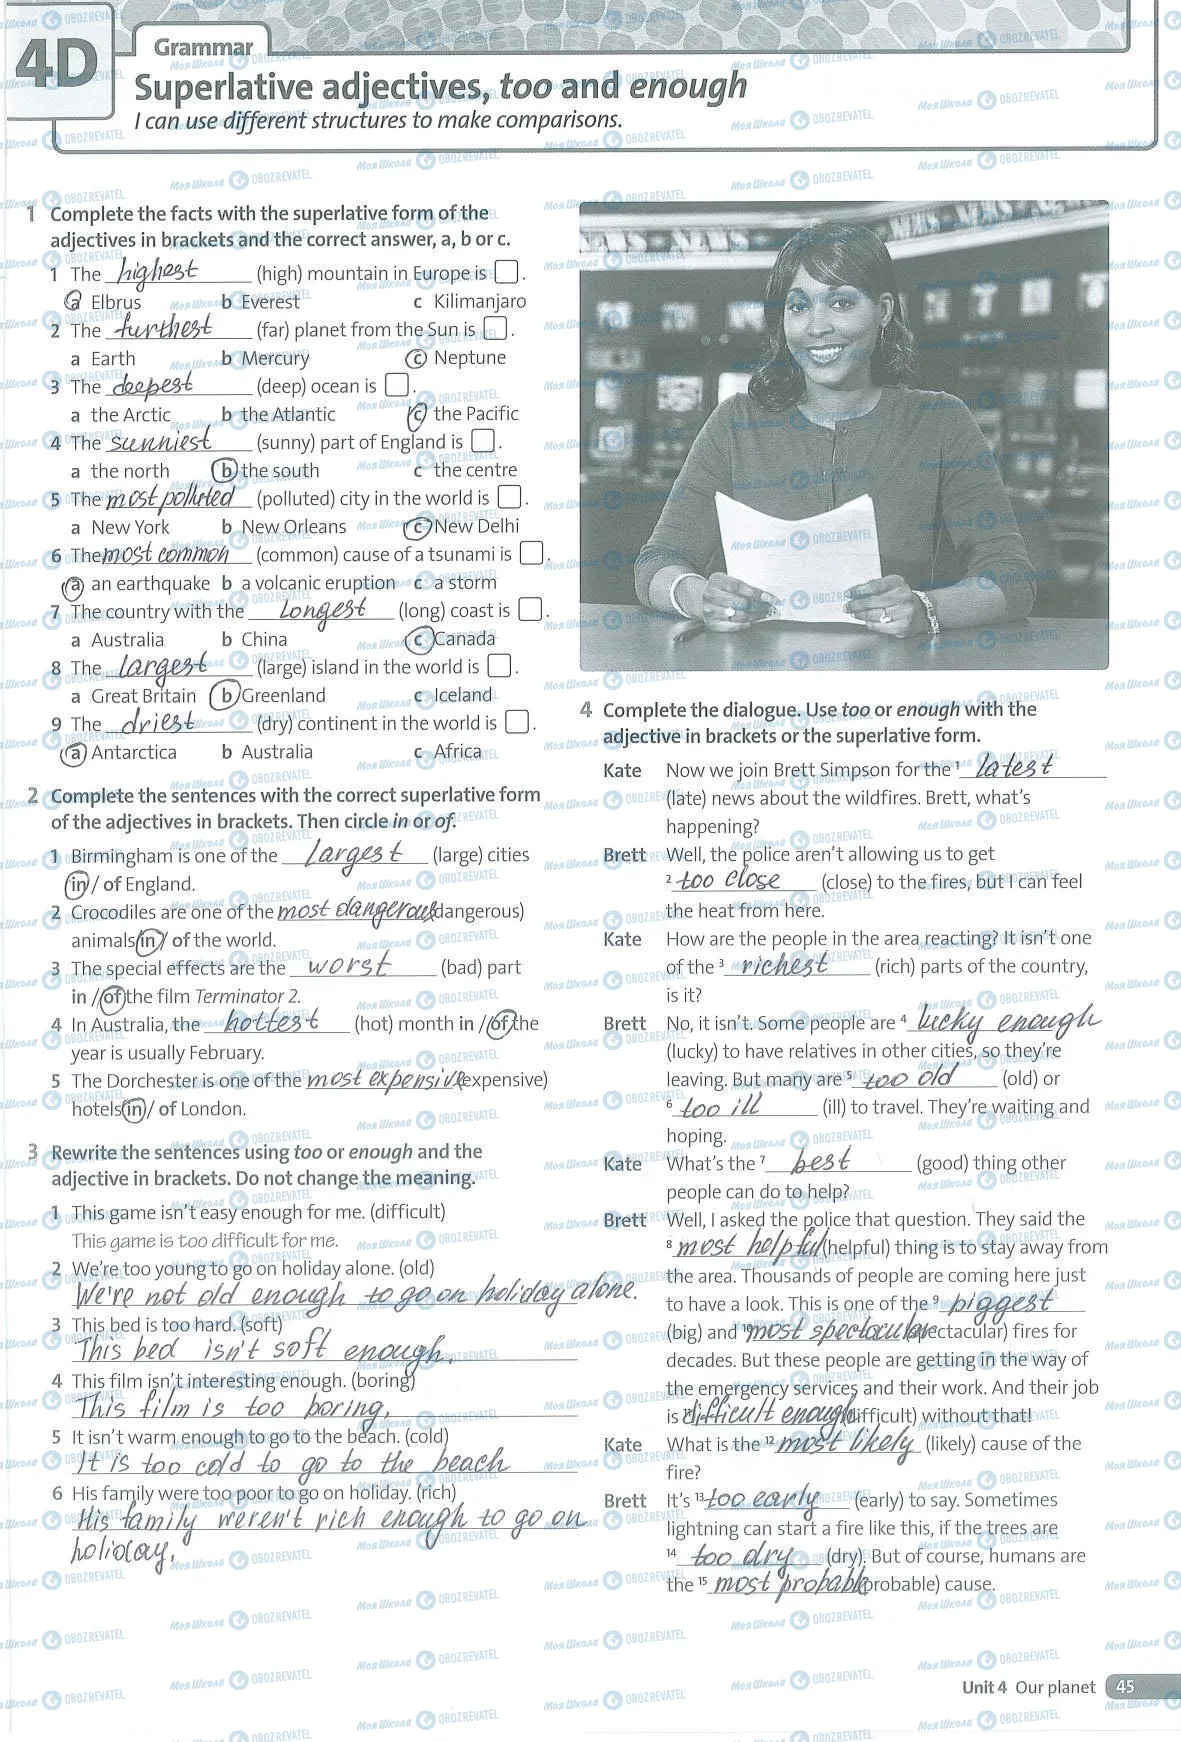 4D
Grammar
Superlative adjectives, too and enough
I can use different structures to make comparisons.
1 Complete the facts with the superlative form of the
adjectives in brackets and the correct answer, a, b or c.
1 The highest (high) mountain in Europe is .
a Elbrus b Everest c Kilimanjaro
2 The furthest (far) planet from the Sun is .
a Earth b Mercury c Neptune
3 The deepest (deep) ocean is .
a the Arctic b the Atlantic c the Pacific
4 The sunniest (sunny) part of England is .
a the north b the south c the centre
5 The most polluted (polluted) city in the world is .
a New York b New Orleans c New Delhi
6 The most common (common) cause of a tsunami is .
a an earthquake b a volcanic eruption c a storm
7 The country with the longest (long) coast is .
a Australia b China c Canada
8 The largest (large) island in the world is .
a Great Britain b Greenland c Iceland
9 The driest (dry) continent in the world is .
a Antarctica b Australia c Africa
2 Complete the sentences with the correct superlative form
of the adjectives in brackets. Then circle in or of.
1 Birmingham is one of the largest (large) cities
in / of England.
2 Crocodiles are one of the most dangerous (dangerous)
animals in / of the world.
3 The special effects are the worst (bad) part
in / of the film Terminator 2.
4 In Australia, the hottest (hot) month in / of the
year is usually February.
5 The Dorchester is one of the most expensive (expensive)
hotels in / of London.
3 Rewrite the sentences using too or enough and the
adjective in brackets. Do not change the meaning.
1 This game isn't easy enough for me. (difficult)
This game is too difficult for me.
2 We're too young to go on holiday alone. (old)
We're not old enough to go on holiday alone.
3 This bed is too hard. (soft)
This bed isn't soft enough.
4 This film isn't interesting enough. (boring)
This film is too boring.
5 It isn't warm enough to go to the beach. (cold)
It is too cold to go to the beach
6 His family were too poor to go on holiday. (rich)
His family weren't rich enough to go on
holiday.
4 Complete the dialogue. Use too or enough with the
adjective in brackets or the superlative form.
Kate Now we join Brett Simpson for the 1 latest
(late) news about the wildfires. Brett, what's
happening?
Brett Well, the police aren't allowing us to get
2 too close (close) to the fires, but I can feel
the heat from here.
Kate How are the people in the area reacting? It isn't one
of the 3 richest (rich) parts of the country,
is it?
Brett No, it isn't. Some people are 4 lucky enough
(lucky) to have relatives in other cities, so they're
leaving. But many are 5 too old (old) or
6 too ill (ill) to travel. They're waiting and
hoping.
Kate What's the 7 best (good) thing other
people can do to help?
Brett Well, I asked the police that question. They said the
8 most helpful (helpful) thing is to stay away from
the area. Thousands of people are coming here just
to have a look. This is one of the 9 biggest
(big) and 10 most spectacular (spectacular) fires for
decades. But these people are getting in the way of
the emergency services and their work. And their job
is difficult enough (difficult) without that!
Kate What is the 12 most likely (likely) cause of the
fire?
Brett It's 13 too early (early) to say. Sometimes
lightning can start a fire like this, if the trees are
14 too dry (dry). But of course, humans are
the 15 most probable (probable) cause.
Unit 4 Our planet 45
Моя Школа OBOZREVATEL